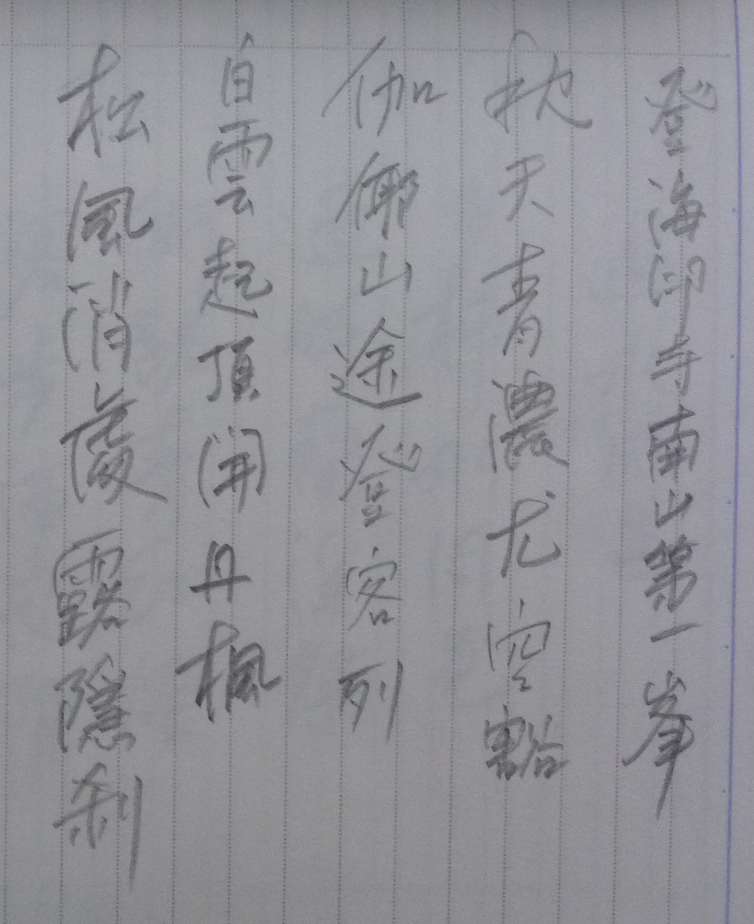 登海印寺南山第一峯
秋天青濃尤空豁
伽倻山途登客列
白雲起頂開丹楓
松風消處露隱刹